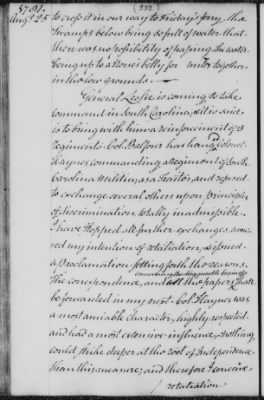 1781.
Augt. 25
(232)
to cross it in our way to Friday's ferry, the
Swamps below being so full of water that
there was no possibility of passing, the water
being up to a Horse's belly for miles together
in the low grounds. —
General Leslie is coming to take
command in South Carolina, & it is said
is to bring with him a reinforcement of 3
Regiments. Col. Balfour has hanged Colonel
Hayne, commanding a Regiment of South
Carolina Militia, as a Traitor, and refused
to exchange several others upon principles
of discrimination totally inadmissible.
I have stopped all further exchanges, announ-
ced my intention of retaliation, & issued
a Proclamation setting forth the reasons.
concerning this disagreeable business
The correspondence, and all the papers shall
be forwarded in my next. Col. Hayne was
a most amiable character, highly respected
and had a most extensive influence. Nothing
could strike deeper at the root of Independence
than this measure; and therefore I conceive
retaliation